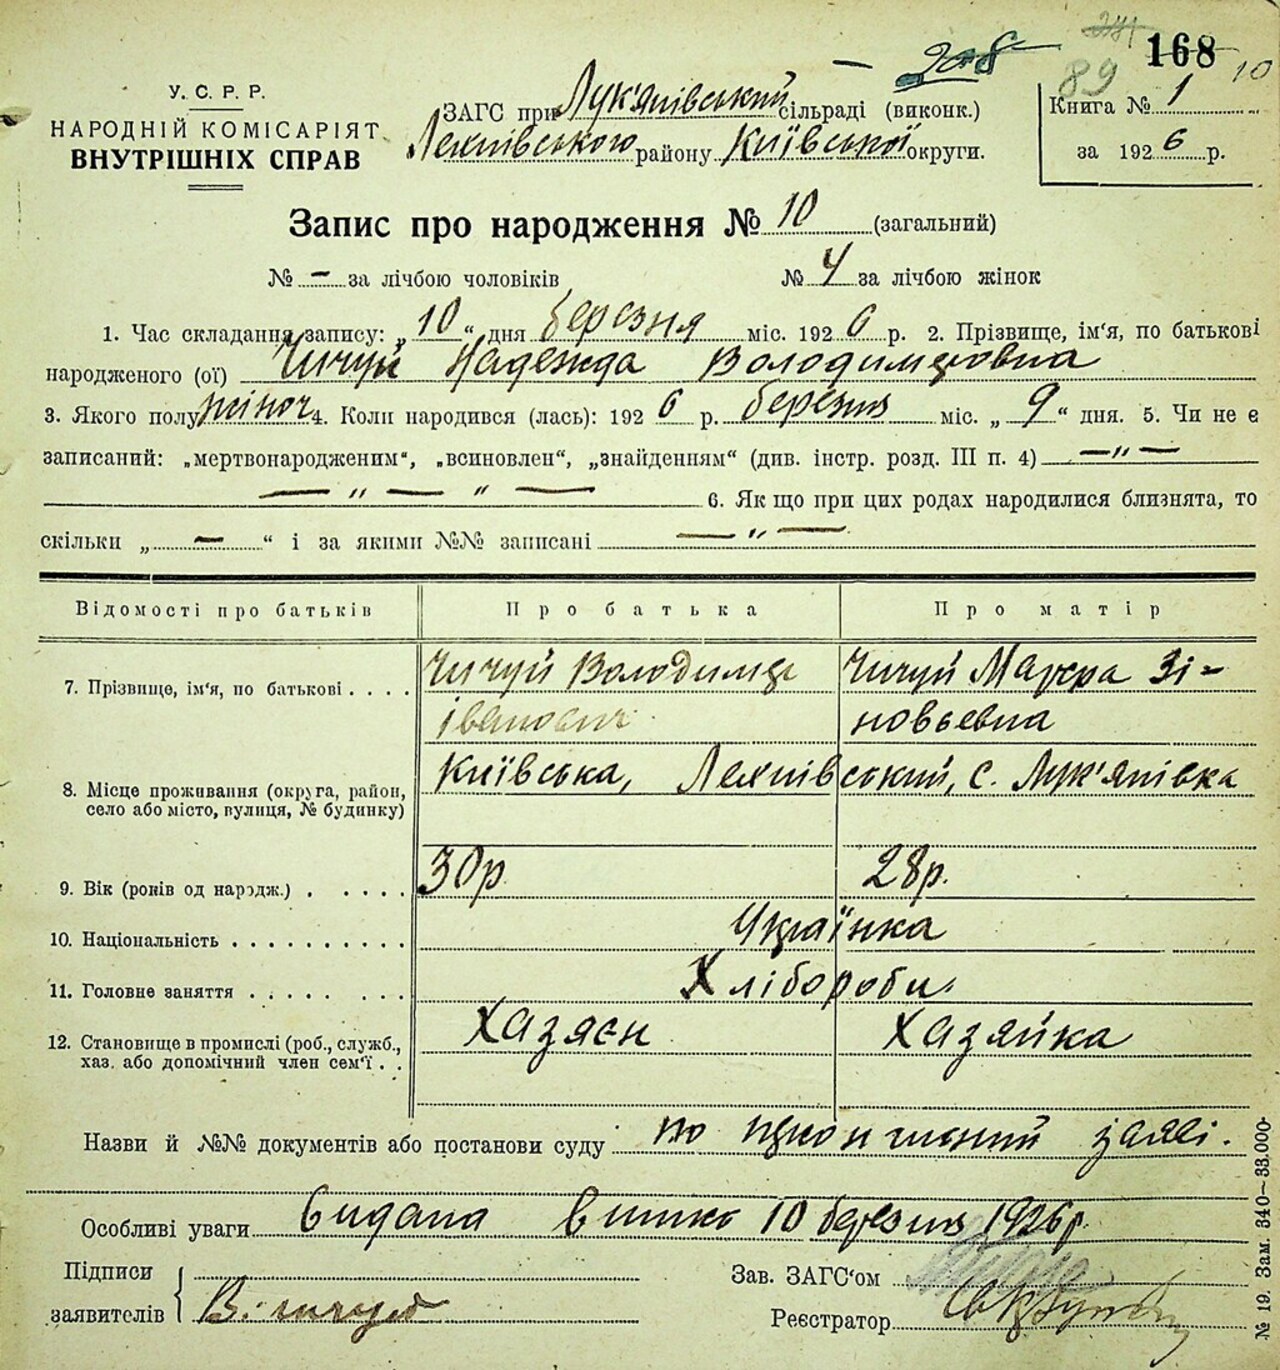 241 168
208 89 10
У. С. Р. Р.
НАРОДНІЙ КОМІСАРІЯТ
ВНУТРІШНІХ СПРАВ
ЗАГС при Лук'янівський сільраді (виконк.)
Лехнівського району Київської округи.
Книга № 1
за 1926 р.
Запис про народження № 10 (загальний)
№ — за лічбою чоловіків № 4 за лічбою жінок
1. Час складання запису: „10“ дня березня міс. 1926 р. 2. Прізвище, ім‘я, по батькові
народженого (ої) Чичуй Надежда Володимировна
3. Якого полу жіноч 4. Коли народився (лась): 1926 р. березня міс. „9“ дня. 5. Чи не є
записаний: „мертвонародженим“, „всиновлен“, „знайденням“ (див. інстр. розд. III п. 4) — „ —
— „ — „ — 6. Як що при цих родах народилися близнята, то
скільки „ — “ і за якими №№ записані — „ —
Відомості про батьків Про батька Про матір
7. Прізвище, ім‘я, по батькові . . . . Чичуй Володимир Чичуй Марфа Зі-
Іванович новьевна
8. Місце проживання (округа, район, Київська, Лехнівський, с. Лук'янівка
село або місто, вулиця, № будинку)
9. Вік (років од народж.) . . . . . 30 р. 28 р.
10. Національність . . . . . . . . . . Українка
11. Головне заняття . . . . . . . . . Хлібороби.
12. Становище в промислі (роб., служб., Хазяєн Хазяйка
хаз. або допомічний член сем‘ї . .
Назви й №№ документів або постанови суду по заяві.
Особливі уваги Видана 10 березня 1926 р.
Підписи
заявителів В.
Зав. ЗАГС‘ом
Реєстратор
№ 19. Зам. 340—33.000